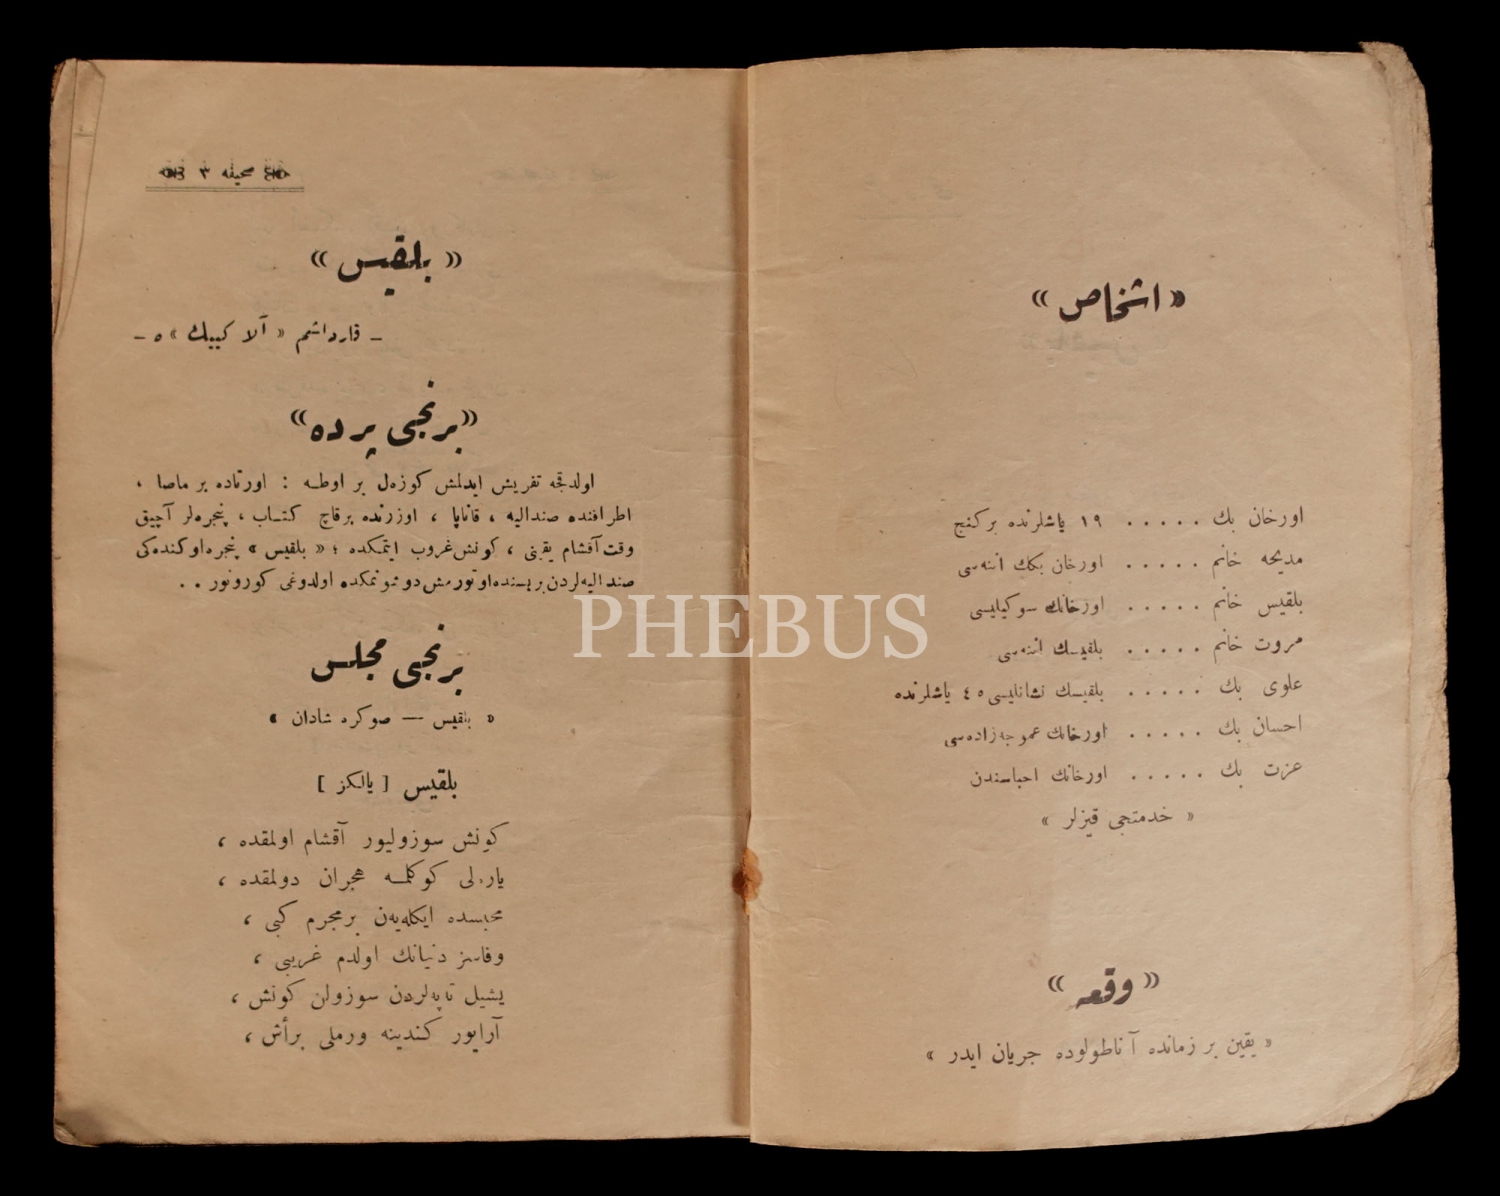 « اشخاص »
اورخان بك . . . . . ١٩ ياشلرنده بر كنج
مديحه خانم . . . . . اورخان بكك اننه‌سى
بلقيس خانم . . . . . اورخانك سوكيليسى
مروت خانم . . . . . بلقيسك اننه‌سى
علوى بك . . . . . بلقيسك نشانليسى ٤٥ ياشلرنده
احسان بك . . . . . اورخانك عموجه‌زاده‌سى
عزت بك . . . . . اورخانك احباسندن
« خدمتجى قيزلر »
« وقعه »
« يقين بر زمانده آناطولوده جريان ايدر »
صحيفه ٣
« بلقيس »
ـ قارداشم « آلا كييك » ه ـ
« برنجى پرده »
اولدقجه تفريش ايدلمش كوزەل بر اوطه : اورتاده بر ماصا ،
اطرافنده صنداليه ، قاناپا ، اوزرنده برقاچ كتاب ، پنجره‌لر آچيق
وقت آقشام يقينى ، كونش غروب ايتمكده ؛ « بلقيس » پنجره اوكنده‌كى
صنداليه‌لردن بريسنده اوتورمش دوشونمكده اولدوغى كورونور . .
برنجى مجلس
« بلقيس — صوكره شادان »
بلقيس [ يالكز ]
كونش سوزوليور آقشام اولمقده ،
يارەلى كوكلمه هجران دولمقده ،
محبسده ايكله‌يەن بر مجرم كبى ،
وفاسز دنيانك اولدم غريبى ،
يشيل تپه‌لردن سوزولن كونش ،
آرايور كندينه ورملى بر أش ،
PHEBUS